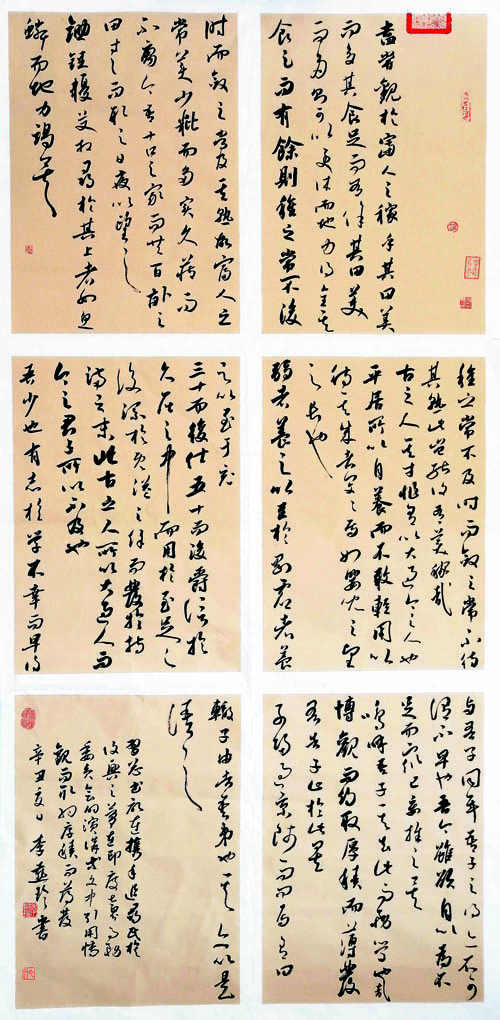 盍尝觀於富人之稼乎其田美
而多其食足而有余其田美
而多則可以更休而地力得全其
食足而有餘則種之常不後
时而斂之常及其熟故富人之
常美少秕而多实久藏而
不腐今吾十口之家而共百畝之
田寸寸而取之日夜以望之
锄銍耰艾相尋於其上者如魚
鳞而地力竭矣
種之常不及时而斂之常不待
其熟此岂能復有美稼哉
古之人其才非有以大過今之人也
平居所以自養而不敢輕用以
待其成者闵闵焉如嬰兒之望
之长也
弱者養之以至於剛虚者養
之以至于充
三十而後仕五十而後爵信於
久屈之中而用於至足之
後流於既溢之餘而發於持
满之末此古之人所以大過人而
今之君子所以不及也
吾少也有志於学不幸而早得
与吾子同年吾子之得亦不可
谓不早也吾今雖欲自以為不
足而众已妄推之矣
嗚呼吾子其去此而務学也哉
博觀而約取厚積而薄發
吾告子止於此矣
子归過京师而问焉有曰
轍子由者吾弟也其亦以是
语之
習总书記在携手追尋民族
復興之夢在印度世界事務
委員会的演講中引用博
觀而約取厚積而薄發
辛丑夏日 李 書